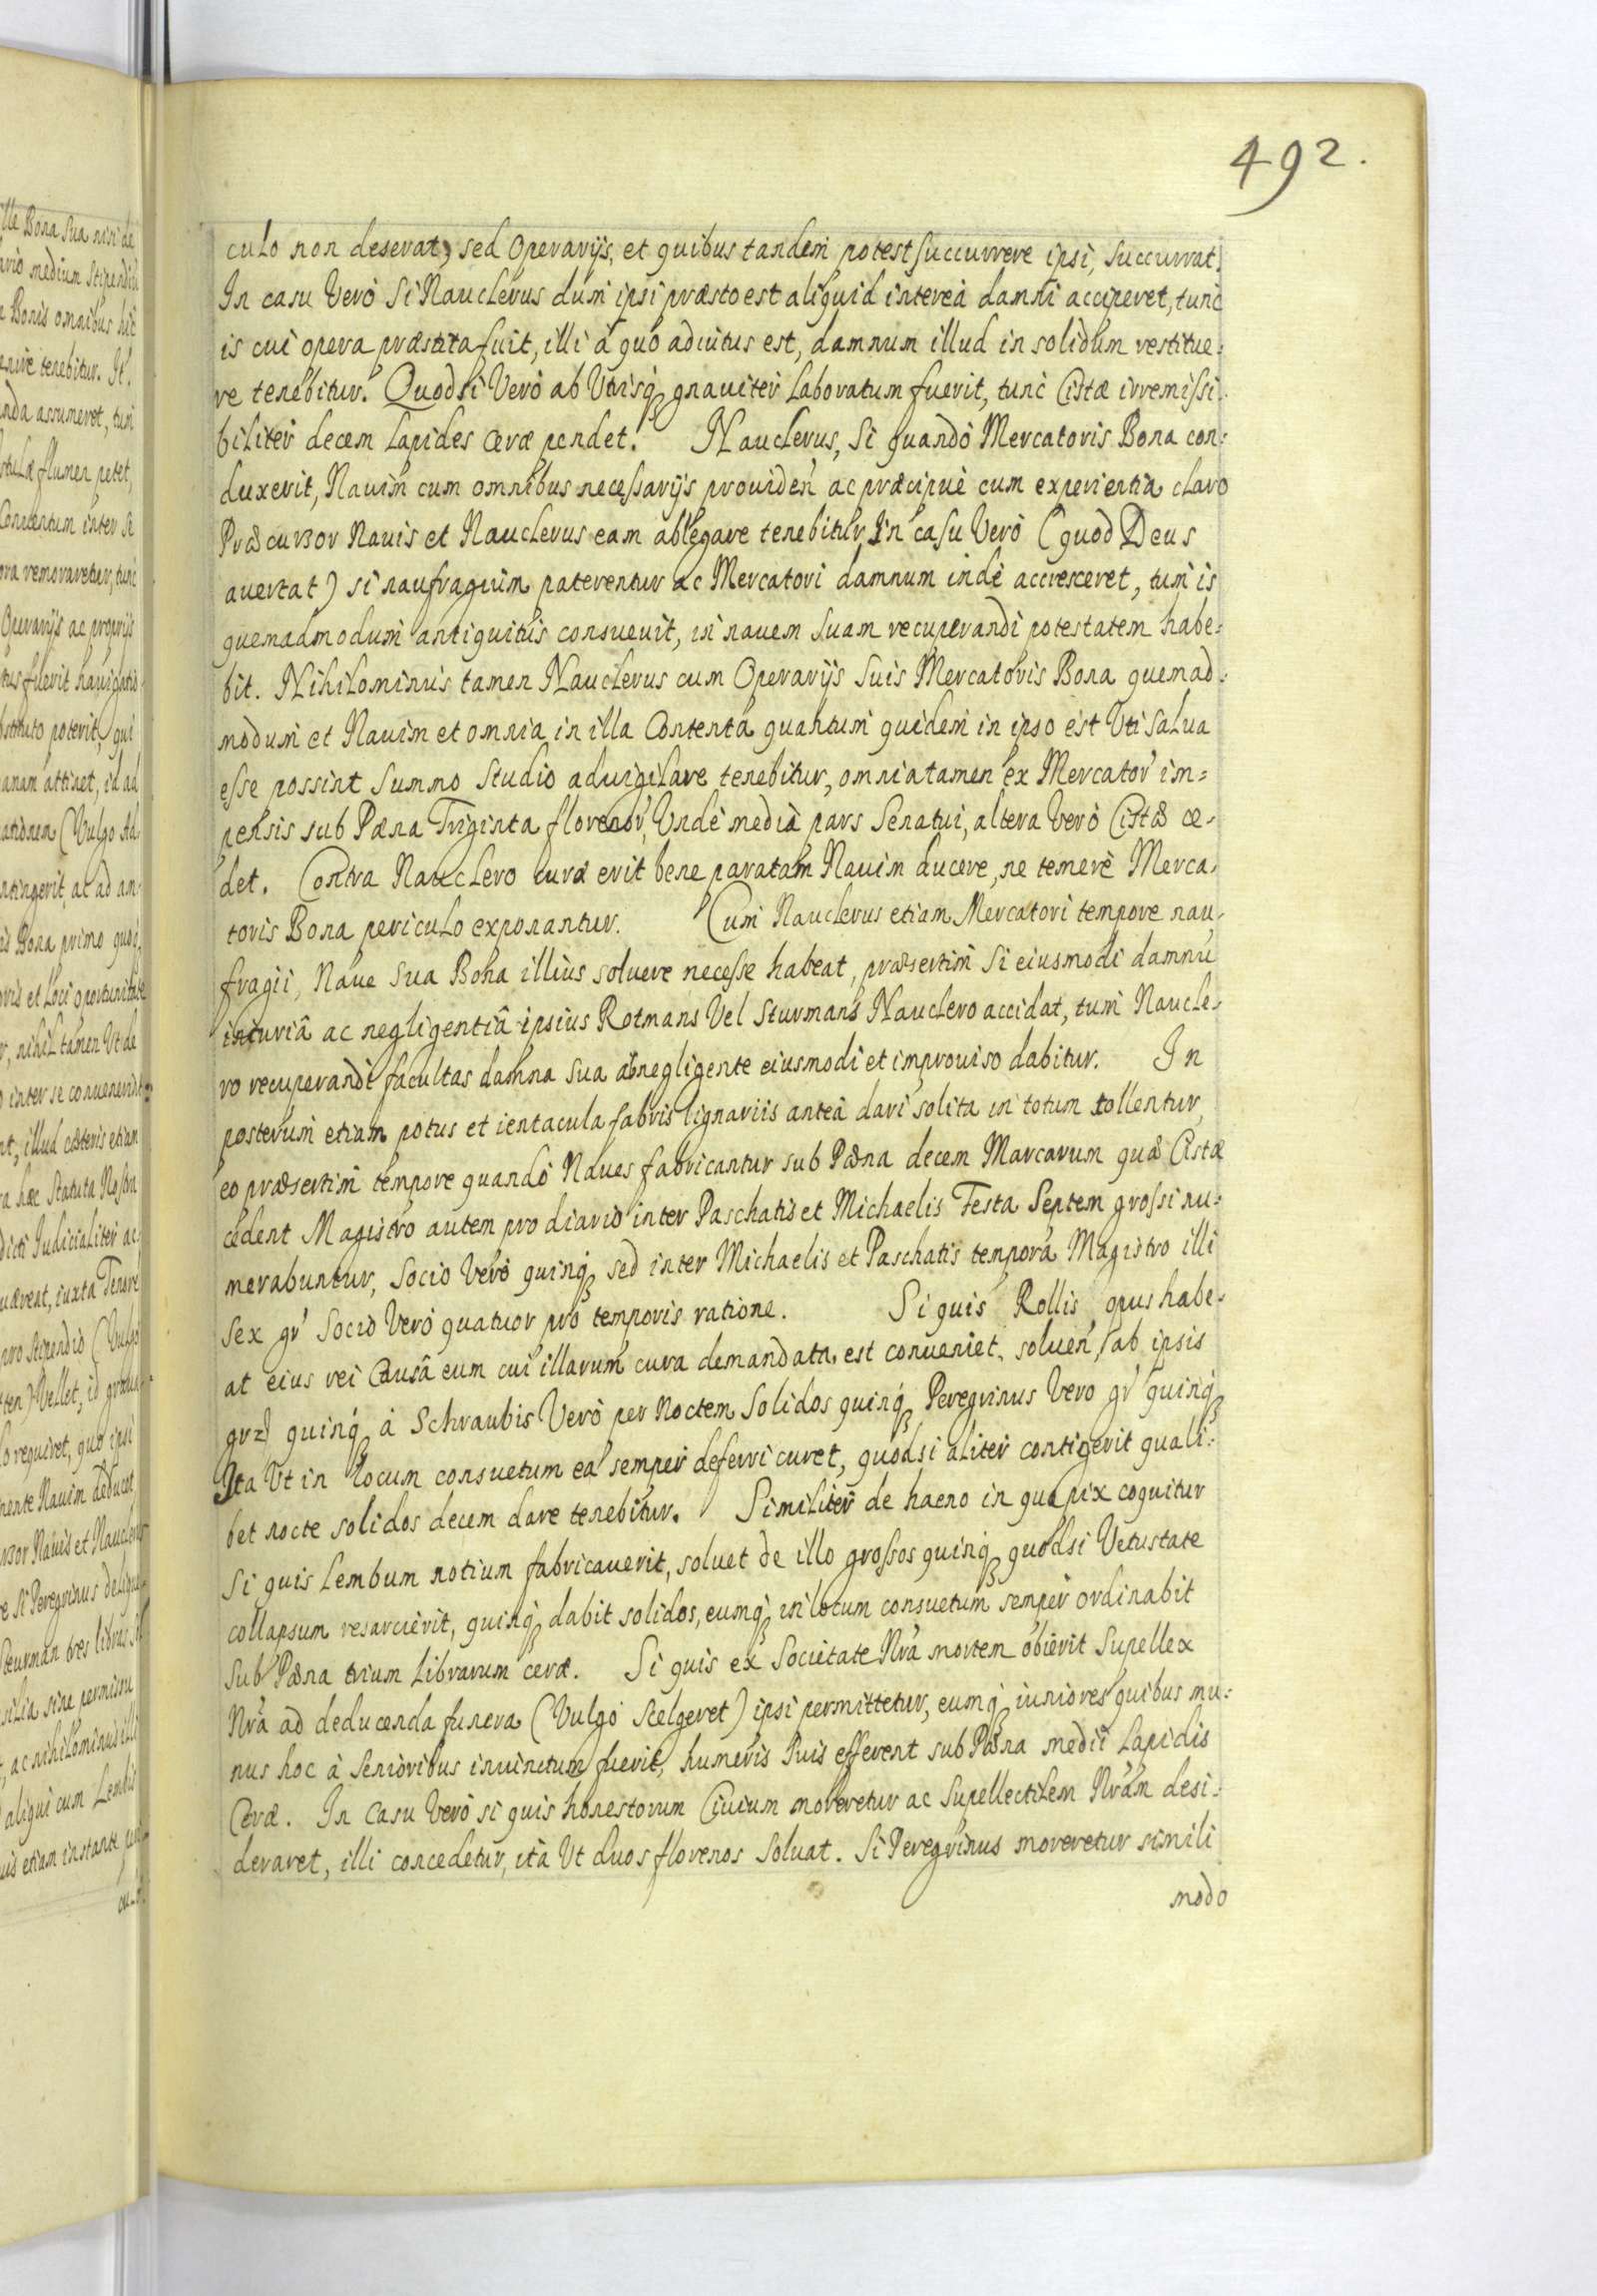 492.
culo non deserat, sed Operarijs, et quibus tandem potest succurrere ipsi, succurrat.
In casu Verò Si Nauclerus dum ipsi præsto est aliquid intereà damni acciperet, tunc
is cui opera præstita fuit, illi à quo adiutus est, damnum illud in solidum restitue:
re tenebitur. Quodsi Verò ab Utrisq̃ gnauiter Laboratum fuerit, tunc Cistæ irremissi:
biliter decem Lapides ceræ pendet. Nauclerus, Si quandò Mercatoris Bona con:
duxerit, Nauim cum omnibus necessarijs prouiden̄ ac præcipuè cum experientia claro
Præcursor Nauis et Nauclerus eam ablegare tenebitur. In casu Verò (quod Deus
auertat) si naufragium paterentur ac Mercatori damnum indè accresceret, tum is
quemadmodum antiquitus consueuit, in nauem Suam recuperandi potestatem habe:
bit. Nihilominus tamen Nauclerus cum Operarijs Suis Mercatoris Bona quemad:
modum et Nauim et omnia in illa Contenta quantum quidem in ipso est Uti Salua
esse possint Summo Studio aduigilare tenebitur, omnia tamen ex Mercator' im=
pensis sub Pæna Triginta florenor', Undè media pars Senatui, altera Verò Cistæ ce:
det. Contra Nauclero curæ erit bene paratam Nauim ducere, ne temerè Merca:
toris Bona periculo exponantur. Cum Nauclerus etiam Mercatori tempore nau:
fragii, Naue Sua Bona illius soluere necesse habeat, præsertim Si eiusmodi damnū
incuriâ ac negligentiâ ipsius Rotmans Vel Sturmans Nauclero accidat, tum Naucle:
ro recuperandi facultas damna Sua a negligente eiusmodi et improuiso dabitur. In
posterum etiam potus et ientacula fabris lignariis anteà dari solita in totum tollentur,
eo præsertim tempore quandò Naues fabricantur sub Pæna decem Marcarum quæ Cistæ
cedent Magistro autem pro diario inter Paschatis et Michaelis Festa Septem grossi nu:
merabuntur, Socio Verò quinq̃ sed inter Michaelis et Paschatis tempora Magistro illi
Sex gr' Socio Verò quatuor pro temporis ratione. Si quis Rollis opus habe:
at eius rei Causâ eum cui illarum cura demandata est conueniet, soluen̄ ab ipsis
quinq̃ à Schraubis Verò per Noctem Solidos quinq̃ Peregrinus Vero gr' quinq̃
Ita Ut in Locum consuetum ea semper deferri curet, quodsi aliter contigerit quali:
bet nocte solidos decem dare tenebitur. Similiter de haeno in quo pix coquitur
Si quis Lembum notium fabricauerit, soluet de illo grossos quinq̃ quodsi Vetustate
collapsum resarcierit, quinq̃ dabit solidos, eumq̃ in locum consuetum semper ordinabit
Sub Pæna trium Librarum ceræ. Si quis ex Societate Nrâ mortem obierit Supellex
Nrâ ad deducenda funera (Vulgo Selgeret) ipsi permittetur, eumq̃ iuniores quibus mu:
nus hoc à Senioribus iniunctum fuerit, humeris Suis efferent sub Pæna medii Lapidis
Ceræ. In Casu Verò si quis honestorum Ciuium moreretur ac Supellectilem Nrâm desi:
deraret, illi concedetur, ità Ut duos florenos Soluat. Si Peregrinus moreretur simili
modo